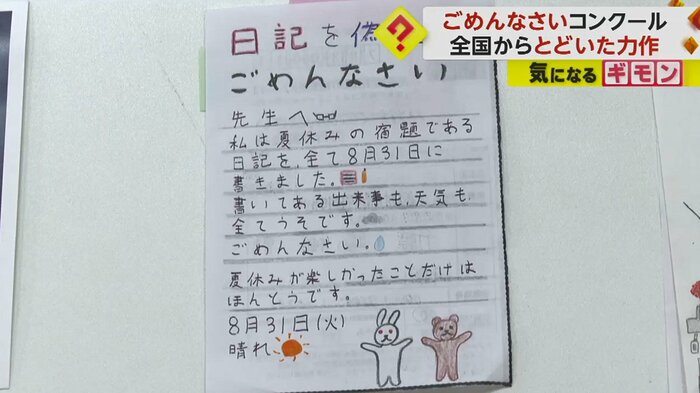 ごめんなさいコンクール
全国からとどいた力作
気になるギモン
?
日記を偽
ごめんなさい
先生へ
私は夏休みの宿題である
日記を、全て8月31日に
書きました。
書いてある出来事も、天気も、
全てうそです。
ごめんなさい。
夏休みが楽しかったことだけは
ほんとうです。
8月31日(火)
晴れ